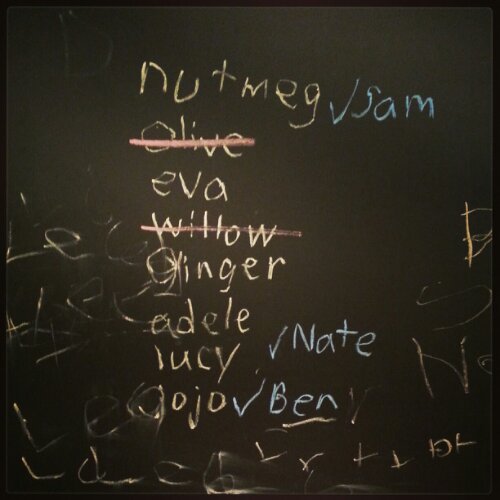 nutmeg √ sam
Olive
eva
willow
ginger
adele
lucy √ Nate
gojo √ Ben